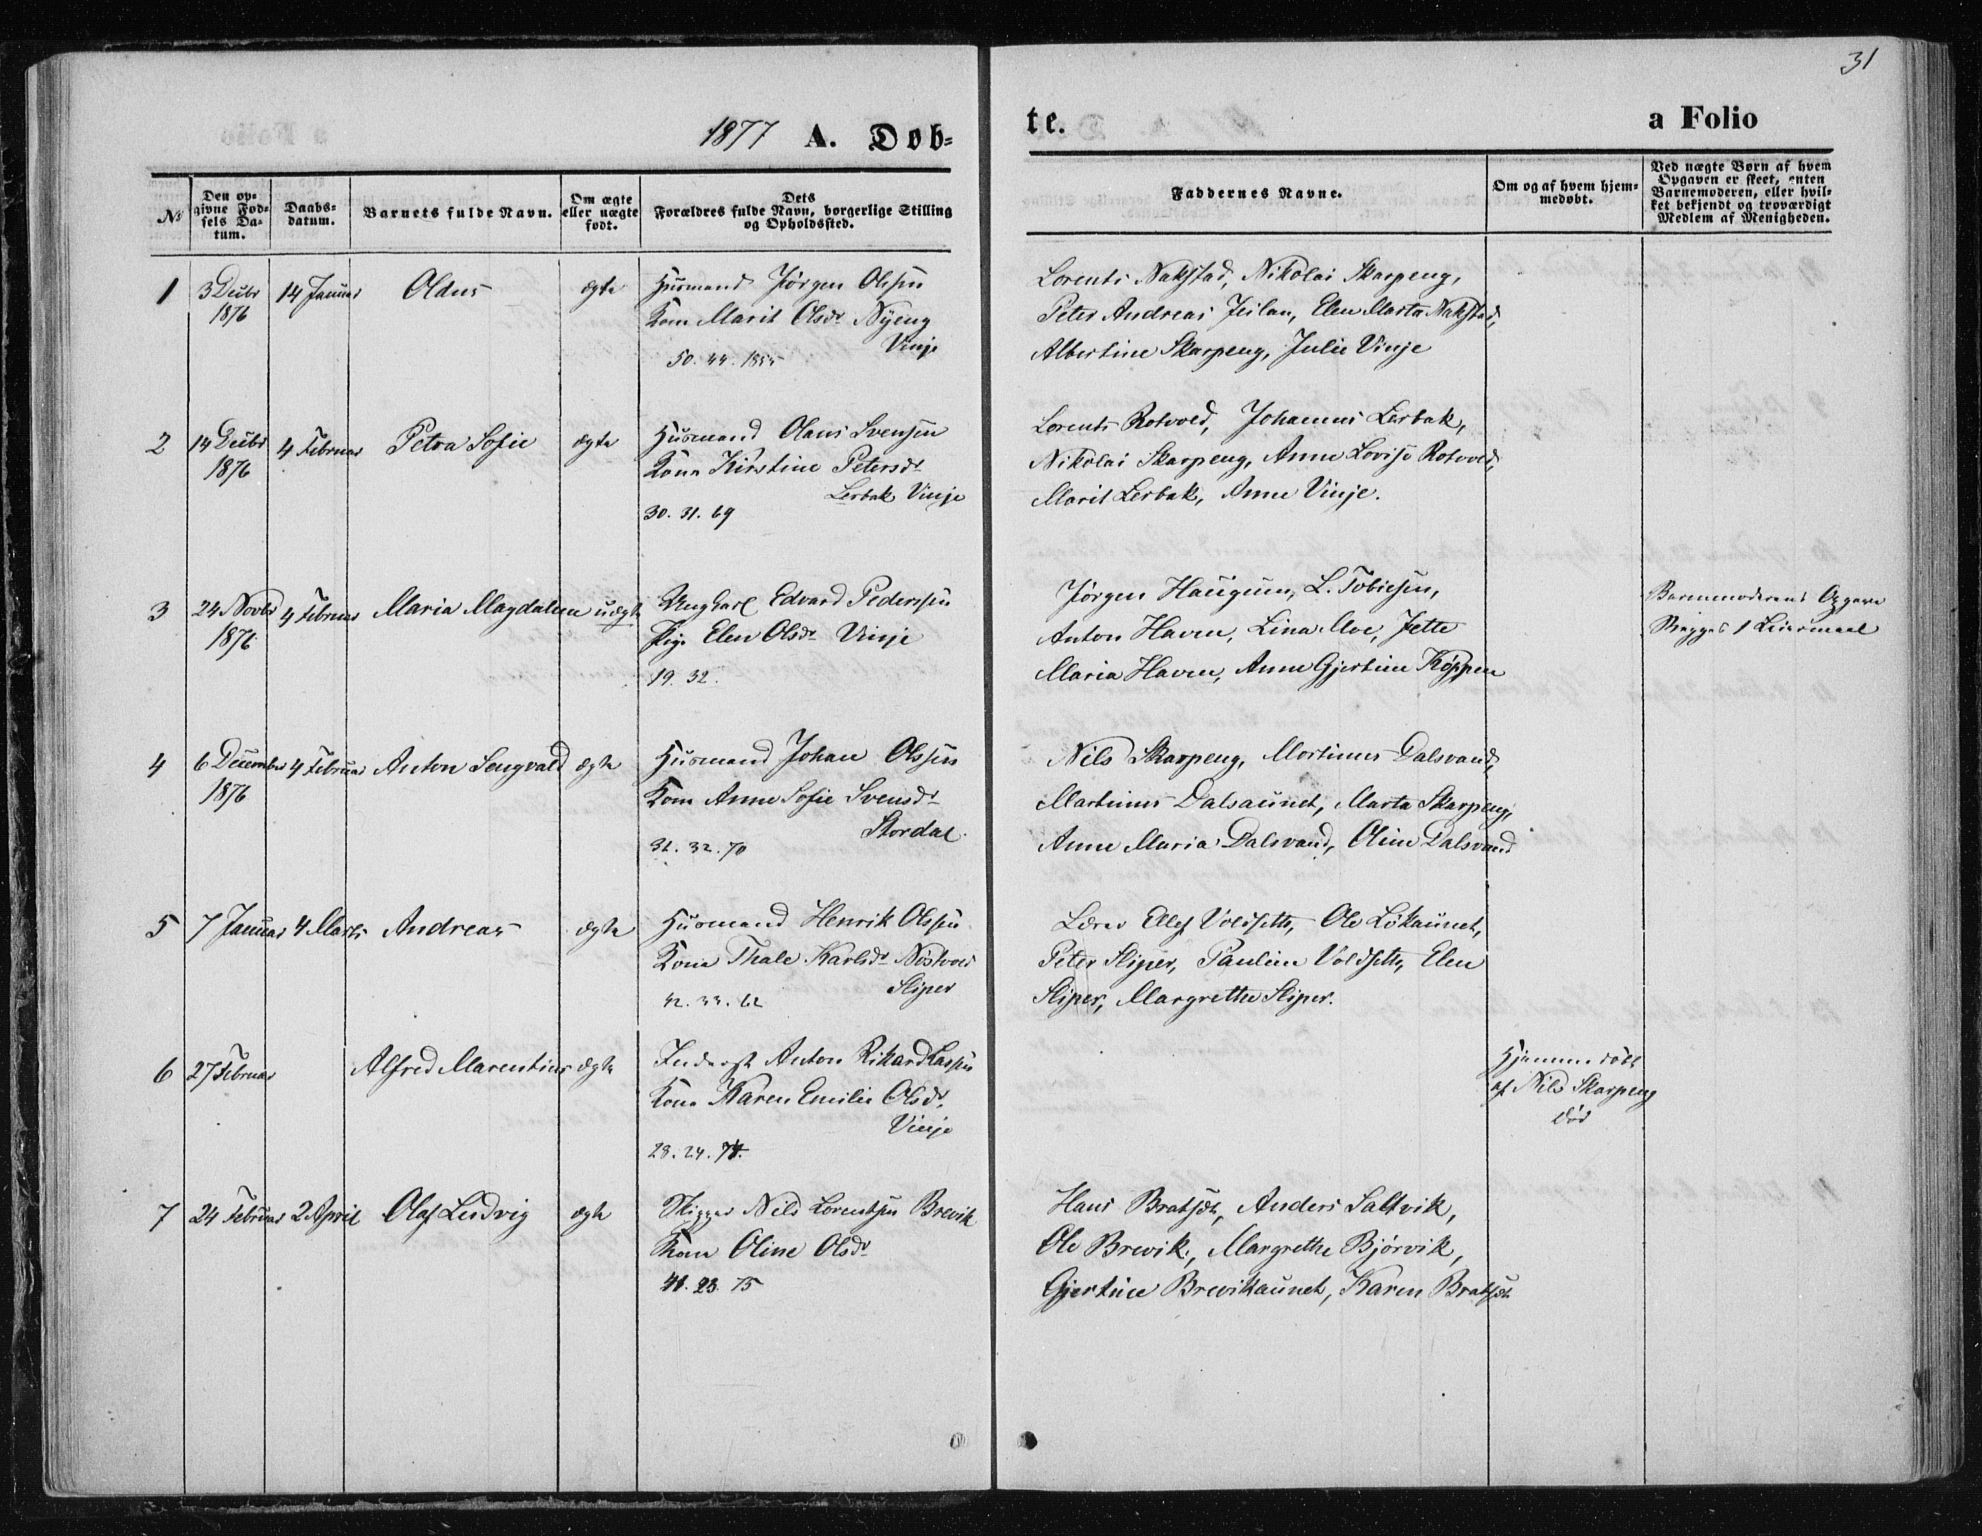 31
1877 A. Døb-
te.
a Folio
No
Den op-
givne Fød-
sels Da-
tum.
Daabs-
datum.
Barnets fulde Navn.
Om ægte
eller uægte
født.
Dets
Forældres fulde Navn, borgerlige Stilling
og Opholdssted.
Faddernes Navne.
Om og af hvem hjem-
medøbt.
Ved uægte Børn af hvem
Opgaven er skeet, enten
Barnemoderen, eller hvil-
ket bekjendt og troværdigt
Medlem af Menigheden.
1
3 Decbr
1876
14 Januar
Oldus
ægte
Husmand Jørgen Olssen
Kone Marit Olsdr Nyeng
Vinje
50. 44. 1855
Lorents Nakstad, Nikolai Skarpeng,
Peter Andreas, Elen Marta Nakstad,
Albertine Skarpeng, Julie Vinje
2
14 Decbr
1876
4 Februar
Petra Sofie
ægte
Husmand Olaus Svensen
Kone Kirstine Petersdr
Lerbak Vinje
30. 31. 69
Lorents Rotvold, Johannes Lerbak,
Nikolai Skarpeng, Anne Lovise Rotvold,
Marit Lerbak, Anne Vinje.
3
24 Novbr
1876
4 Februar
Maria Magdalena
uægte
Ungkarl Edvard Pederssen
Pige Elen Olsdr Vinje
19. 32.
Jørgen Haugum, L. Tobiesen,
Anton Haven, Lina Moe, Jette
Maria Haven, Anne Gjertine Køppen
Barnemoderens Opgave
Begges 1 Leiermaal
4
6 December
1876
4 Februar
Anton Sengvald
ægte
Husmand Johan Olssen
Kone Anne Sofie Svensdr
Stordal.
31. 32. 70
Nils Skarpeng, Martinus Dalsvand,
Martinus Dalsaunet, Marta Skarpeng,
Anne Maria Dalsvand, Oline Dalsvand
5
7 Januar
4 Marts
Andreas
ægte
Husmand Henrik Olssen
Kone Thale Karlsdr Nøstvold
Sliper
42. 33. 62
Lærer Ellef Voldseth, Ole Løkaunet,
Peter Sliper, Pauline Voldseth, Elen
Sliper, Margrethe Sliper.
6
27 Februar
Alfred Marentius
ægte
Inderst Anton Rikard Lassen
Kone Karen Emilie Olsdr.
Vinje
23. 24. 74.
Hjemmedøbt
af Nils Skarpeng
død
7
24 Februar
2 April
Olaf Ludvig
ægte
Nils Lorentsen Brevik
Kone Oline Olsdr
41. 23. 75
Hans Bratset, Anders Saltvik,
Ole Brevik, Margrethe Bjørvik,
Gjertine Brevikaunet, Karen Bratset